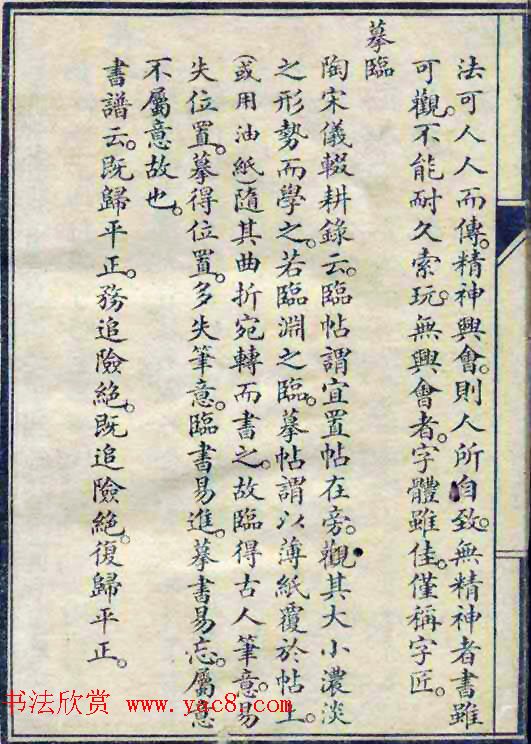 法可人人而傳。精神興會。則人所自致。無精神者書雖
可觀。不能耐久索玩。無興會者。字體雖佳。僅稱字匠。
摹臨
陶宋儀輟耕錄云。臨帖謂宜置帖在旁。觀其大小濃淡
之形勢而學之。若臨淵之臨。摹帖謂以薄紙覆於帖上。
(或用油紙)隨其曲折宛轉而書之。故臨得古人筆意。易
失位置。摹得位置。多失筆意。臨書易進。摹書易忘。屬意
不屬意故也。
書譜云。既歸平正。務追險絕。既追險絕。復歸平正。
书法欣赏 www.yac8.com